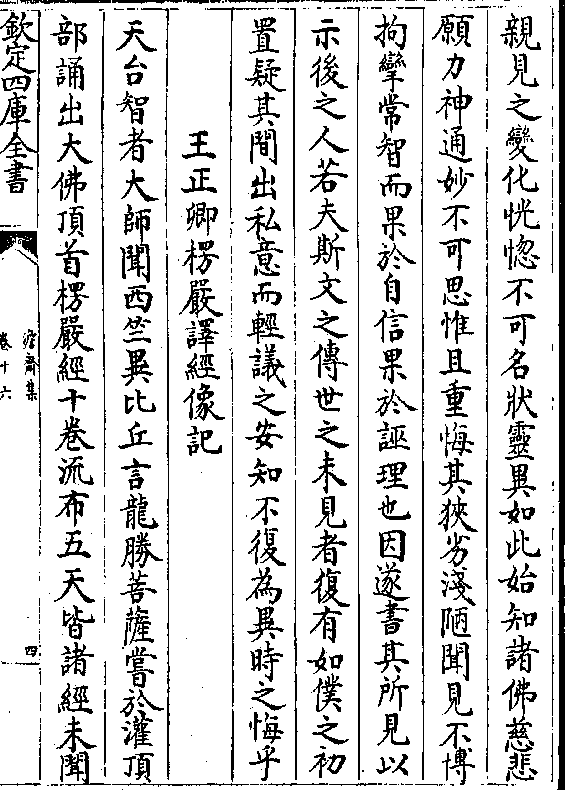 親見之變化恍惚不可名狀靈異如此始知諸佛慈悲
願力神通妙不可思惟且重悔其狹劣淺陋聞見不博
拘攣常智而果於自信果於誣理也因遂書其所見以
示後之人若夫斯文之傳世之未見者復有如僕之初
置疑其間出私意而輕議之安知不復為異時之悔乎
王正卿楞嚴譯經像記
天台智者大師聞西竺異比丘言龍勝菩薩嘗於灌頂
部誦出大佛頂首楞嚴經十卷流布五天皆諸經未聞
欽定四庫全書
卷十六
四